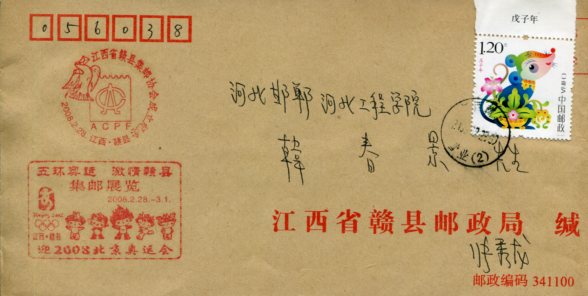 056038
戊子年
1.20元
中国邮政
江西省赣县集邮协会成立纪念
ACPF
2008.2.28 江西·赣县
河北邯郸河北工程学院
韩春景 先生
五环奥运 激情赣县
集邮展览
2008.2.28.-3.1.
Beijing 2008
江西·赣县
迎2008北京奥运会
(2)
江西省赣县邮政局 缄
邮政编码 341100